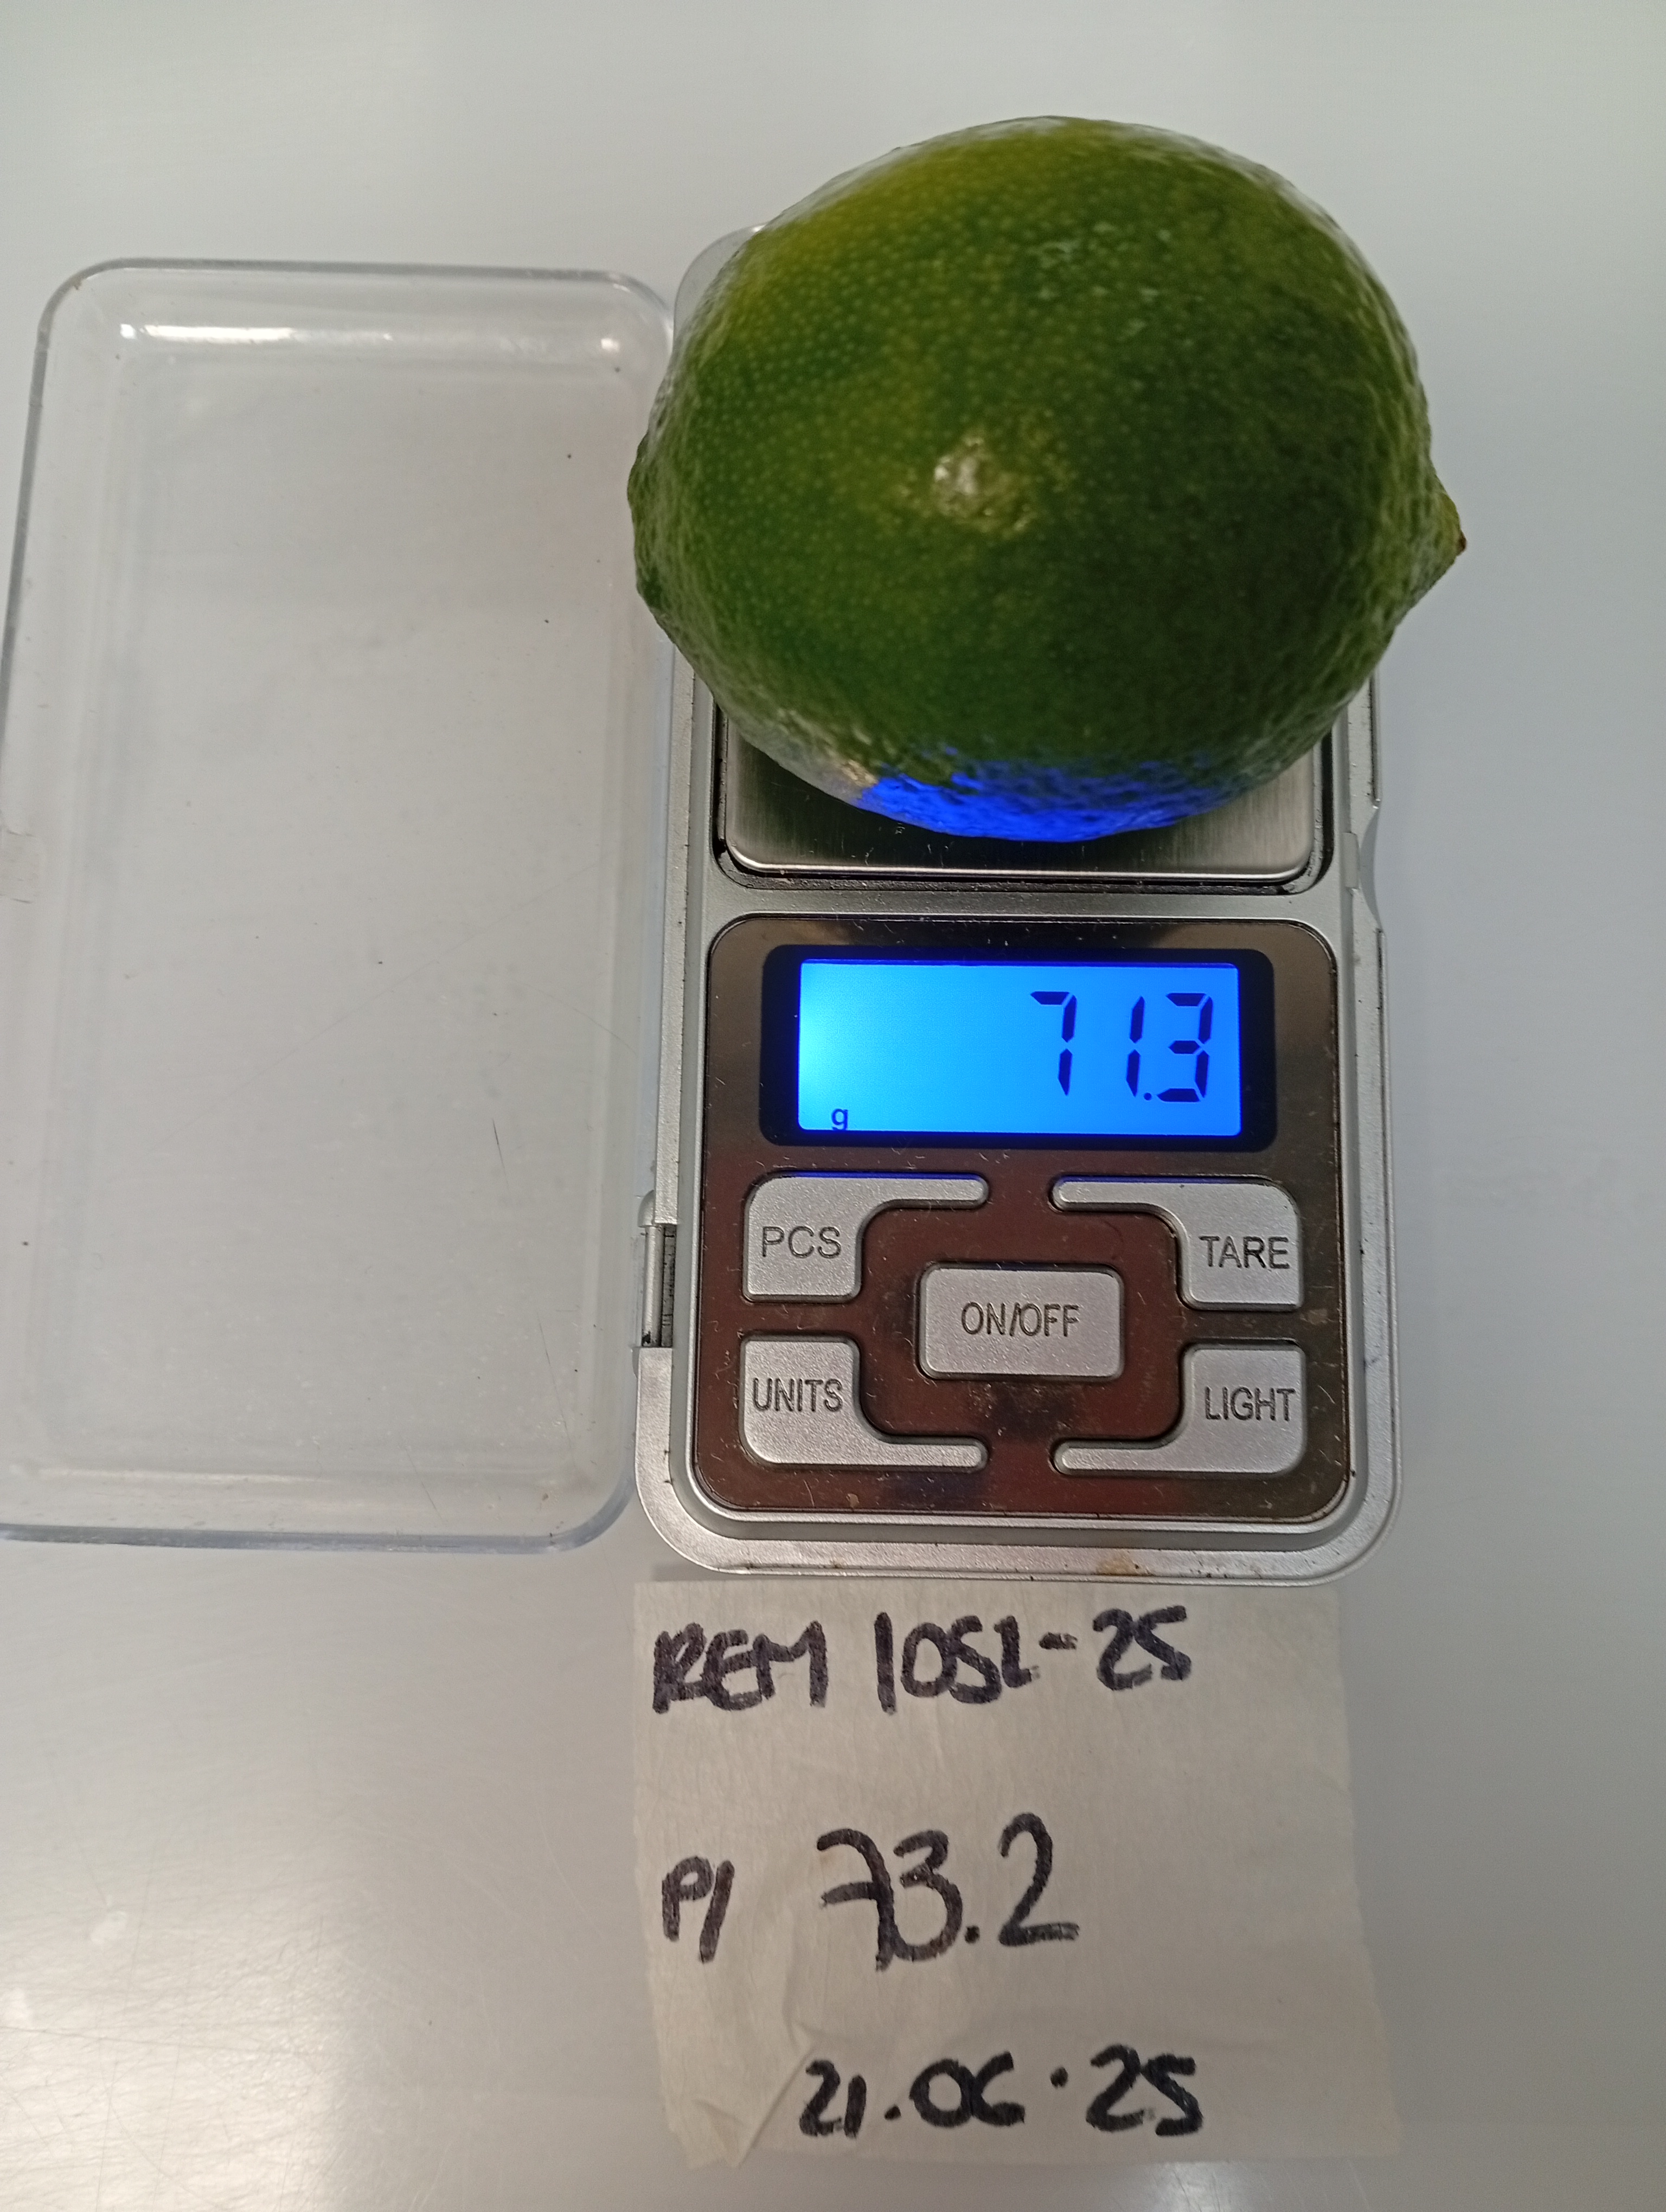 71.3
g
PCS
TARE
ON/OFF
UNITS
LIGHT
REM 1051-25
P/ 73.2
21.06.25